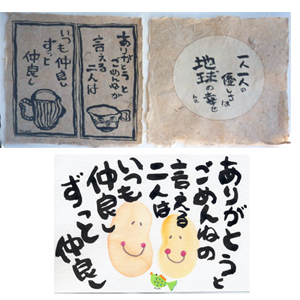 ありがとうと
ごめんねが
言える
二人は
いつも仲良し
ずっと
仲良し
一人一人の
優しさは
地球の幸せ
ありがとうと
ごめんねの
言える
二人は
いつも
仲良し
ずっと
仲良し